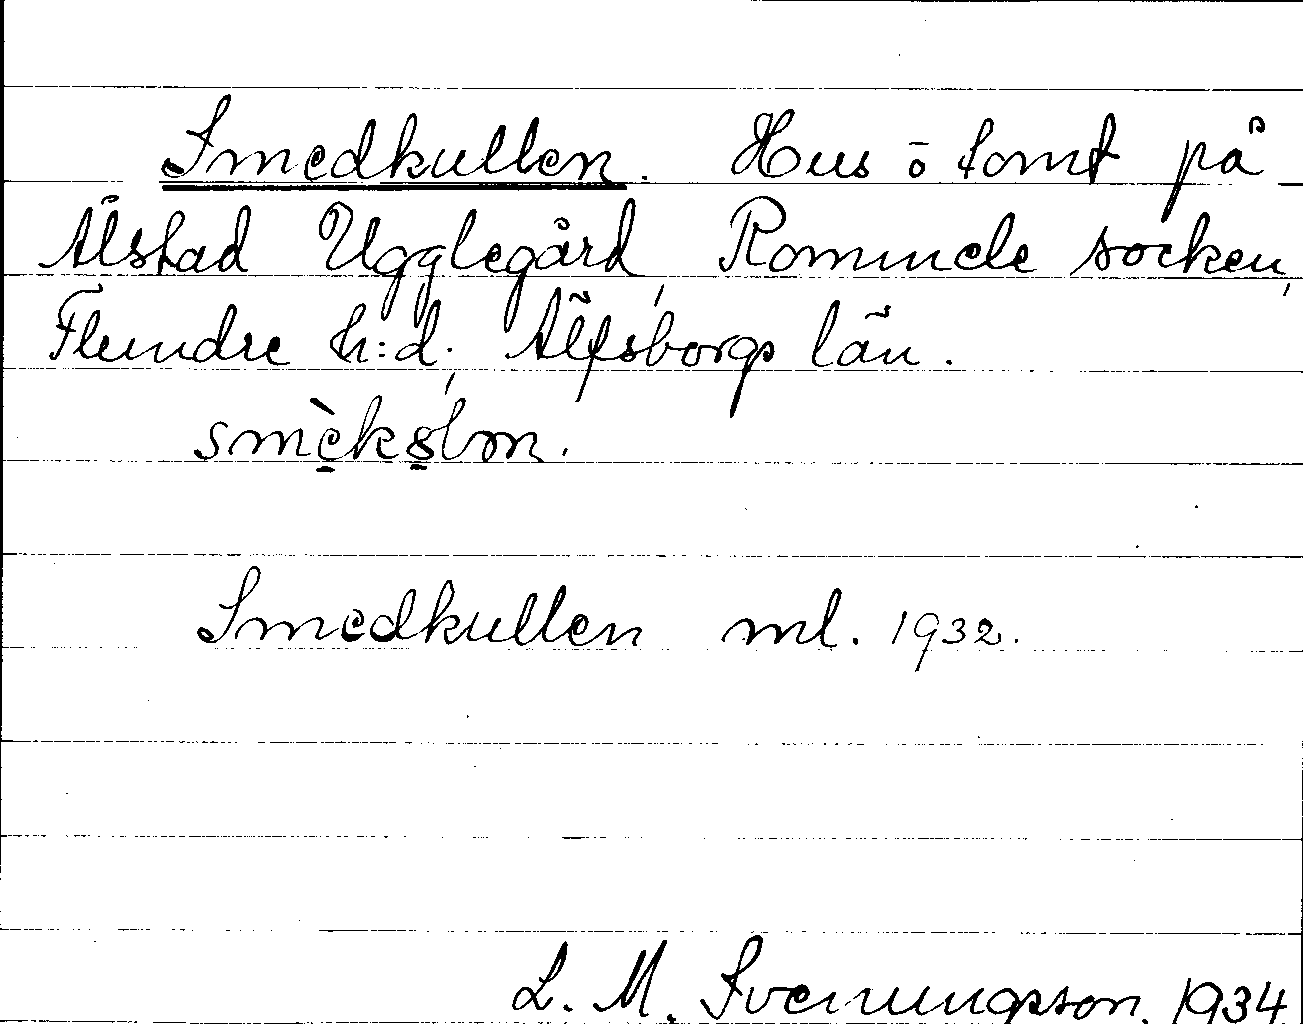 Smedkullen. Hus ō tomt på
Ålstad Ugglegård, Rommele socken,
Flundre h:d, Älfsborgs län.
smèkslon.
Smedkullen ml. 1932.
L. M. Svenungsson. 1934